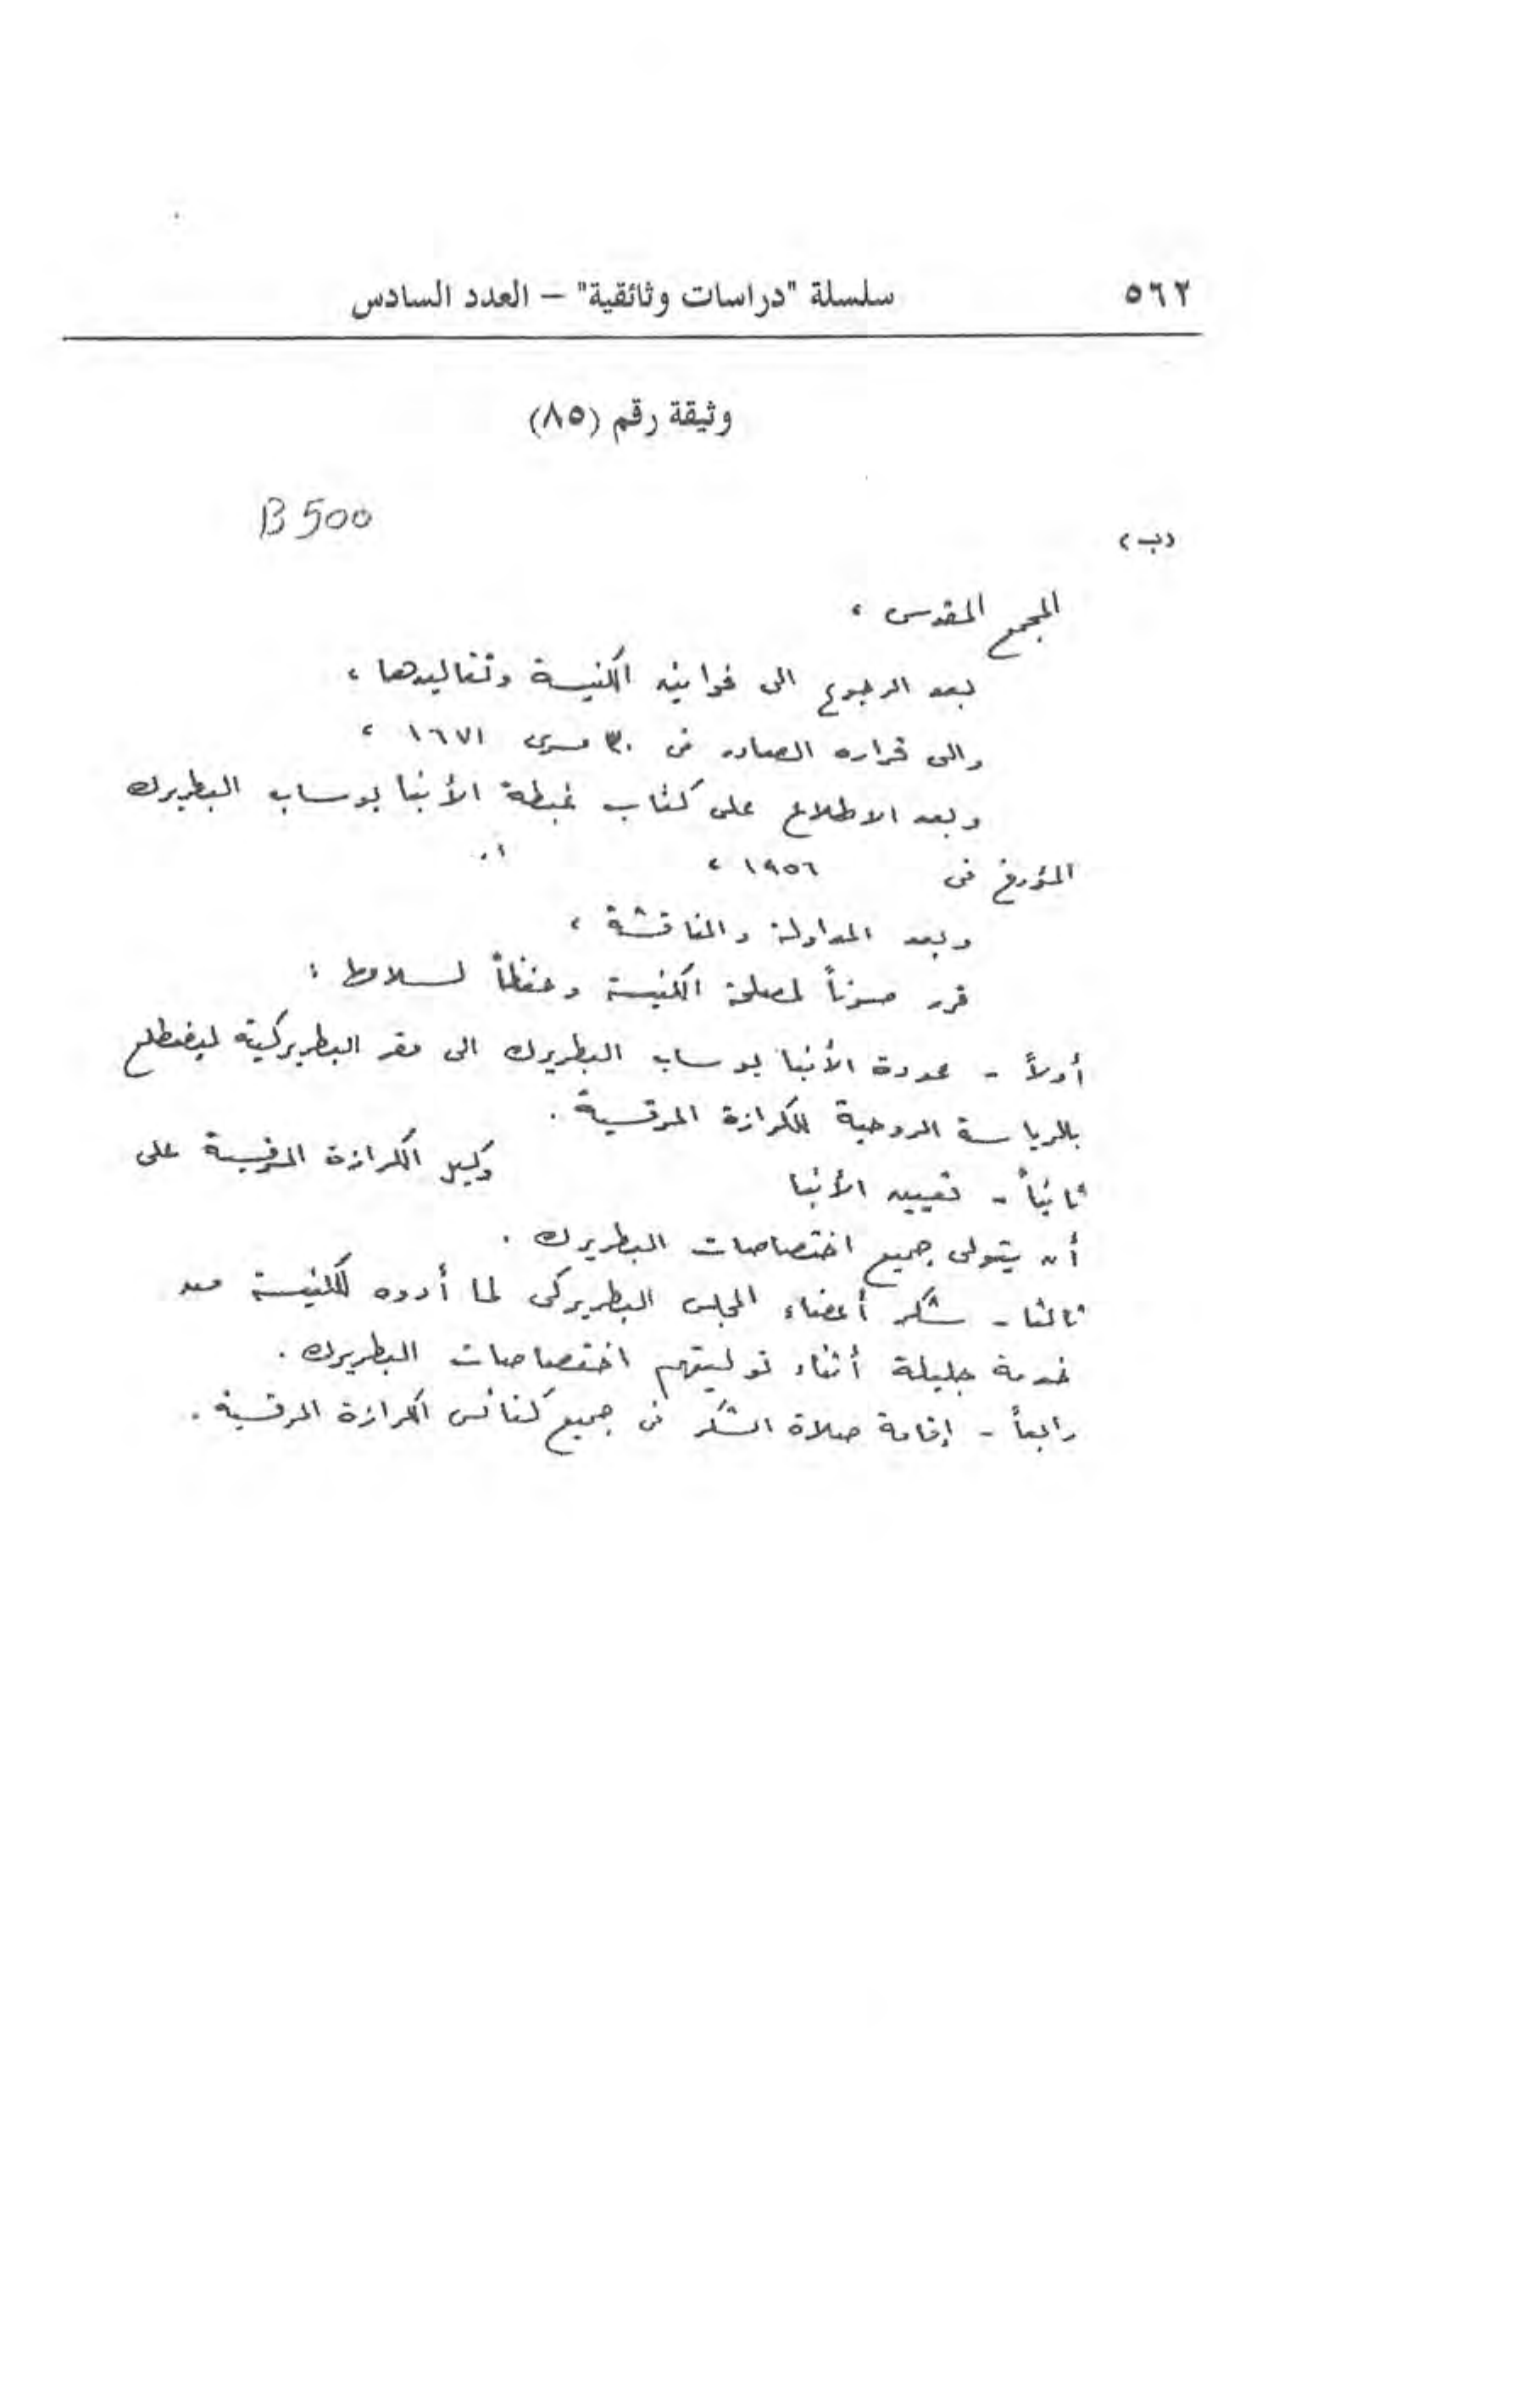 ٥٦٢ سلسلة "دراسات وثائقية" – العدد السادس
وثيقة رقم (٨٥)
B 500
(ب)
المجمع المقدس ،
بعد الرجوع الى قوانين الكنيسة وتقاليدها ،
والى قراره الصادر فى ٣٠ مسرى ١٦٧١ ،
وبعد الاطلاع على كتاب غبطة الأنبا يوساب البطريرك
المؤرخ فى ١٩٥٦ ،
وبعد المداولة والمناقشة ،
قرر صوناً لمصلحة الكنيسة وحفظاً لسلامها :
أولاً - عودة الأنبا يوساب البطريرك الى مقر البطريركية ليضطلع
بالرياسة الروحية للكرازة المرقسية .
ثانياً - تعيين الأنبا وكيل الكرازة المرقسية على
أن يتولى جميع اختصاصات البطريرك .
ثالثا - شكر أعضاء المجلس البطريركى لما أدوه للكنيسة من
خدمة جليلة أثناء توليتهم اختصاصات البطريرك .
رابعاً - إقامة صلاة الشكر فى جميع كنائس الكرازة المرقسية .